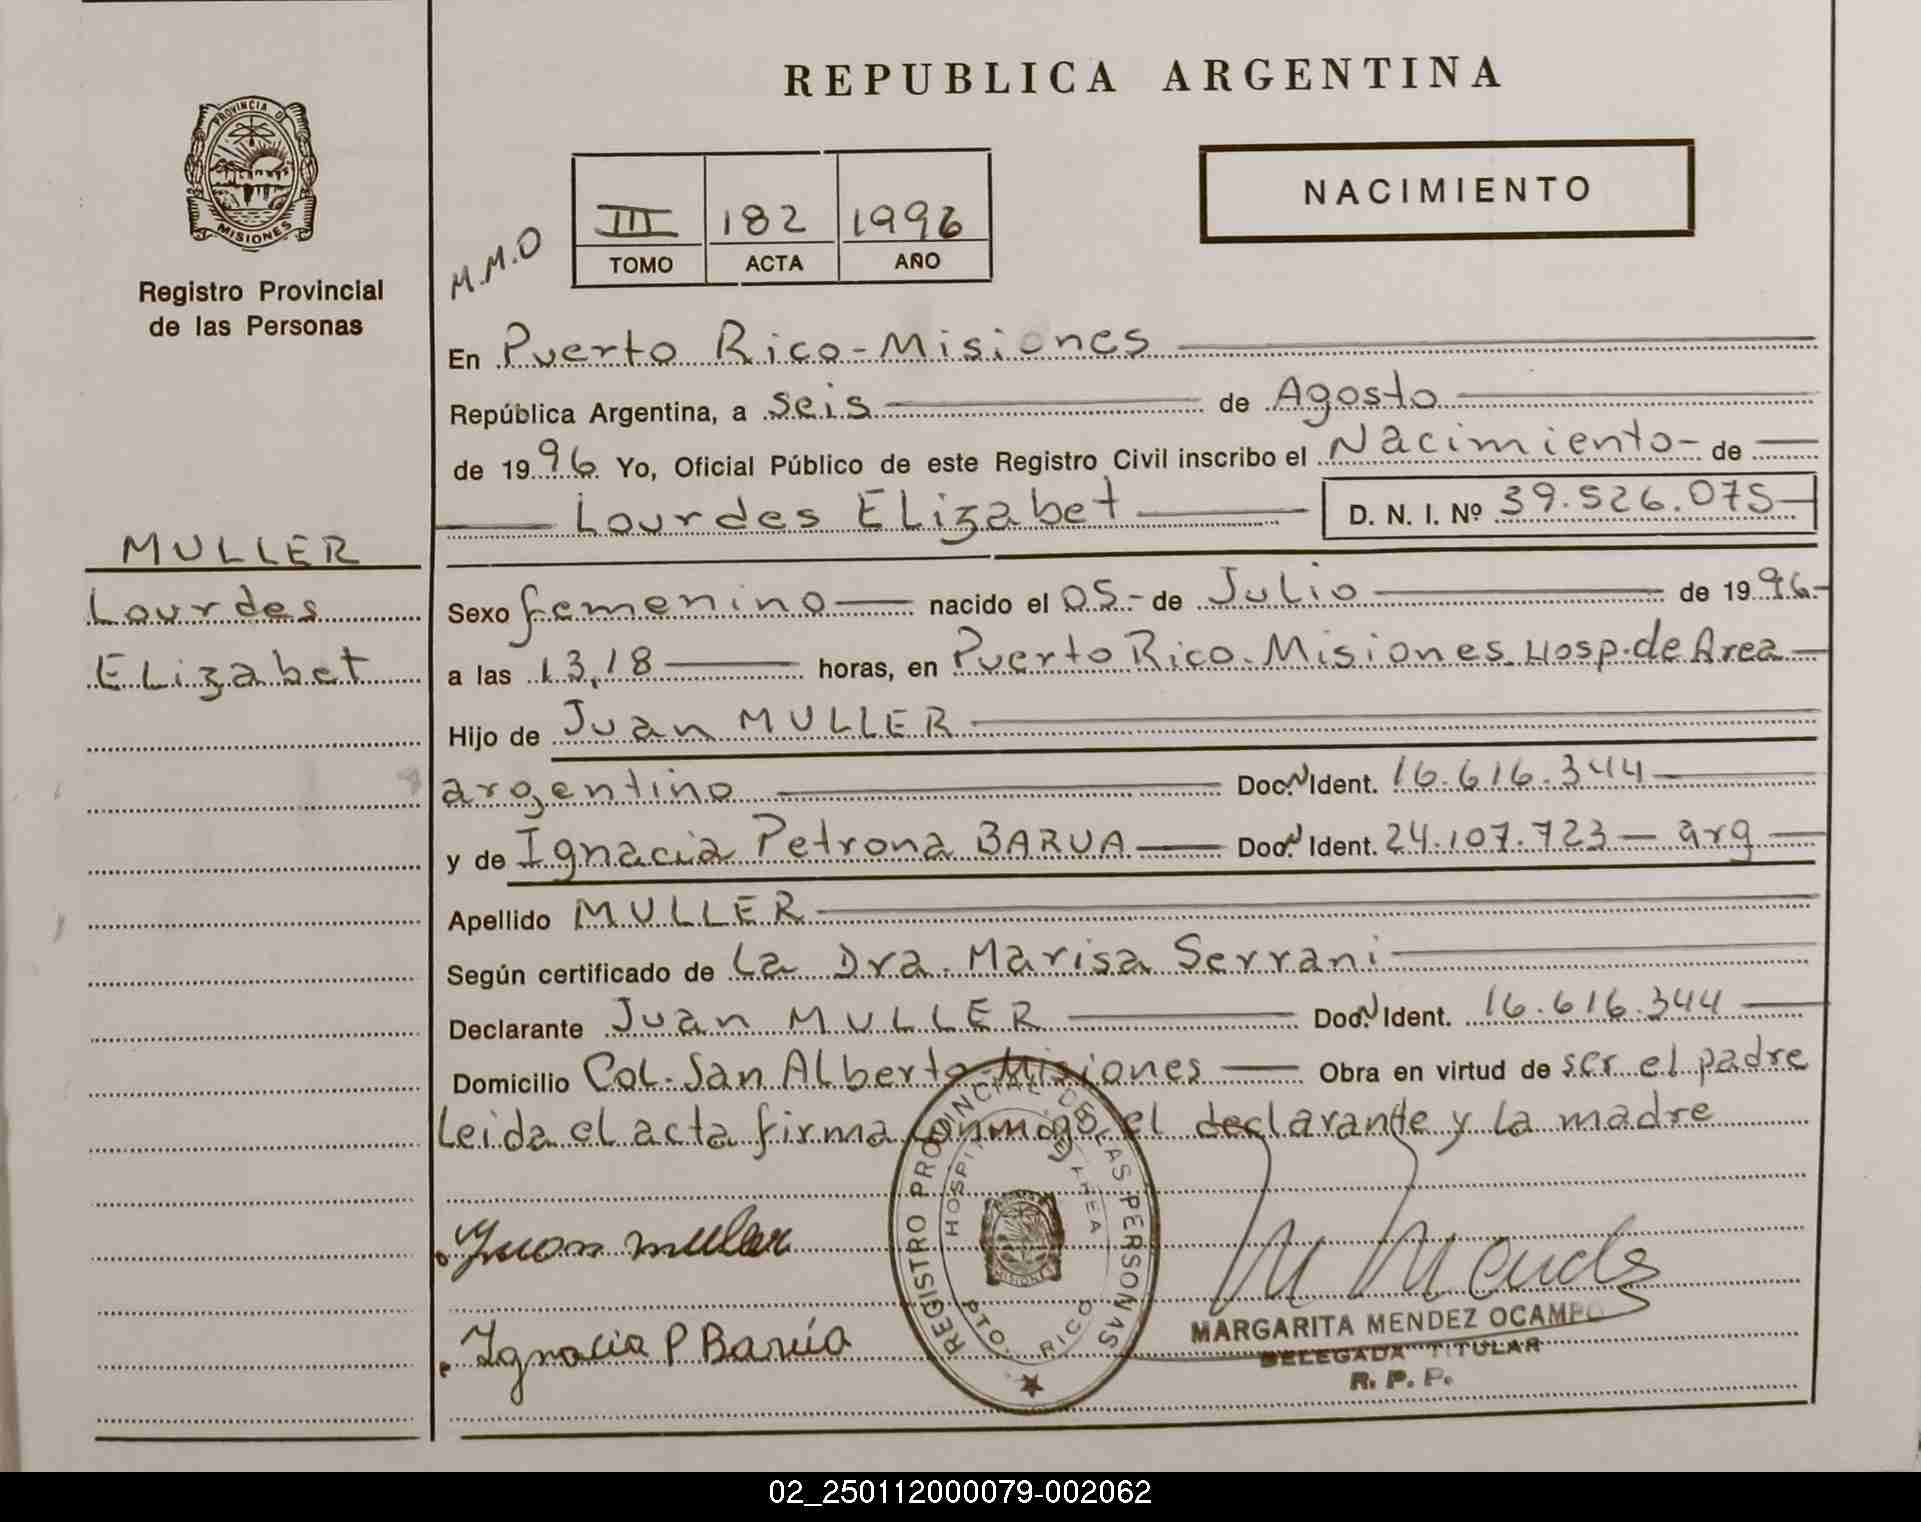 REPUBLICA ARGENTINA
PROVINCIA DE
MISIONES
Registro Provincial
de las Personas
NACIMIENTO
M.M.O
III 182 1996
TOMO ACTA AÑO
En Puerto Rico-Misiones
República Argentina, a seis de Agosto
de 1996 Yo, Oficial Público de este Registro Civil inscribo el Nacimiento- de
Lourdes ELizabet D. N. I. Nº 39.526.075
MULLER
Lourdes
ELizabet
Sexo femenino nacido el 05- de Julio de 1996-
a las 13,18 horas, en Puerto Rico-Misiones.Hosp.de Area
Hijo de Juan MULLER
argentino Doc. N Ident. 16.616.344
y de Ignacia Petrona BARUA Doc. N Ident. 24.107.723 - arg
Apellido MULLER
Según certificado de La Dra. Marisa Serrani
Declarante Juan MULLER Doc. N Ident. 16.616.344
Domicilio Col. San ALberto-Misiones Obra en virtud de ser el padre
Leida el acta firma conmigo el declarante y la madre
REGISTRO PROVINCIAL DE LAS PERSONAS
HOSPITAL DE AREA
PTO. RICO
MISIONES
Juan muller
Ignacia P Barúa
M Mendez
MARGARITA MENDEZ OCAMPO
DELEGADA TITULAR
R. P. P.
02_250112000079-002062